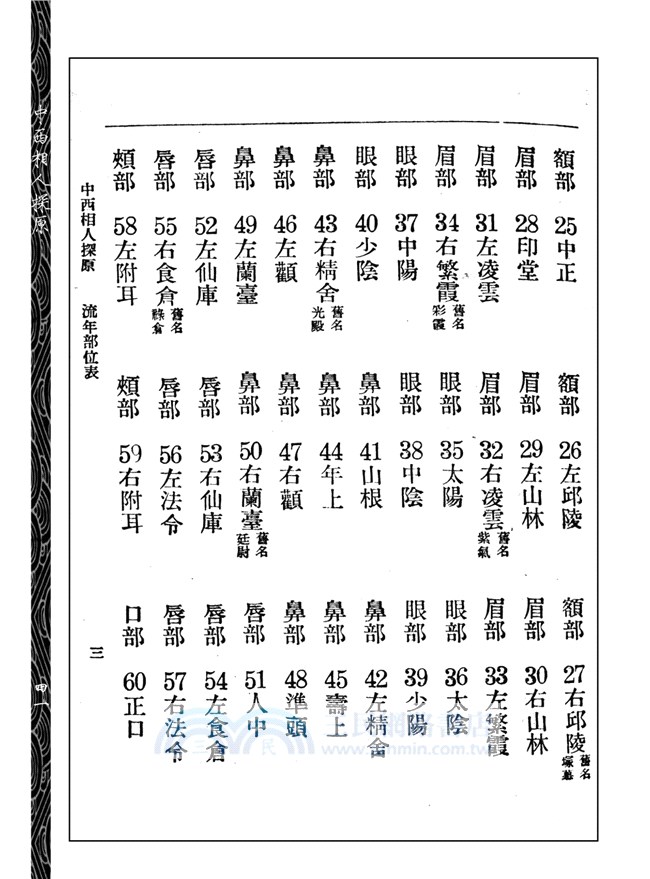 額部 25中正
額部 26左邱陵
額部 27右邱陵 舊名塚墓
眉部 28印堂
眉部 29左山林
眉部 30右山林
眉部 31左凌雲
眉部 32右凌雲 舊名紫氣
眉部 33左繁霞
眉部 34右繁霞 舊名彩霞
眼部 35太陽
眼部 36太陰
眼部 37中陽
眼部 38中陰
眼部 39少陽
眼部 40少陰
鼻部 41山根
鼻部 42左精舍
鼻部 43右精舍 舊名光殿
鼻部 44年上
鼻部 45壽上
鼻部 46左顴
鼻部 47右顴
鼻部 48準頭
鼻部 49左蘭臺
鼻部 50右蘭臺 舊名廷尉
唇部 51人中
唇部 52左仙庫
唇部 53右仙庫
唇部 54左食倉
唇部 55右食倉 舊名祿倉
唇部 56左法令
唇部 57右法令
頰部 58左附耳
頰部 59右附耳
口部 60正口
中西相人探原 流年部位表 三
中西相人探原
四一
三民網路書店
三民
www.sanmin.com.tw